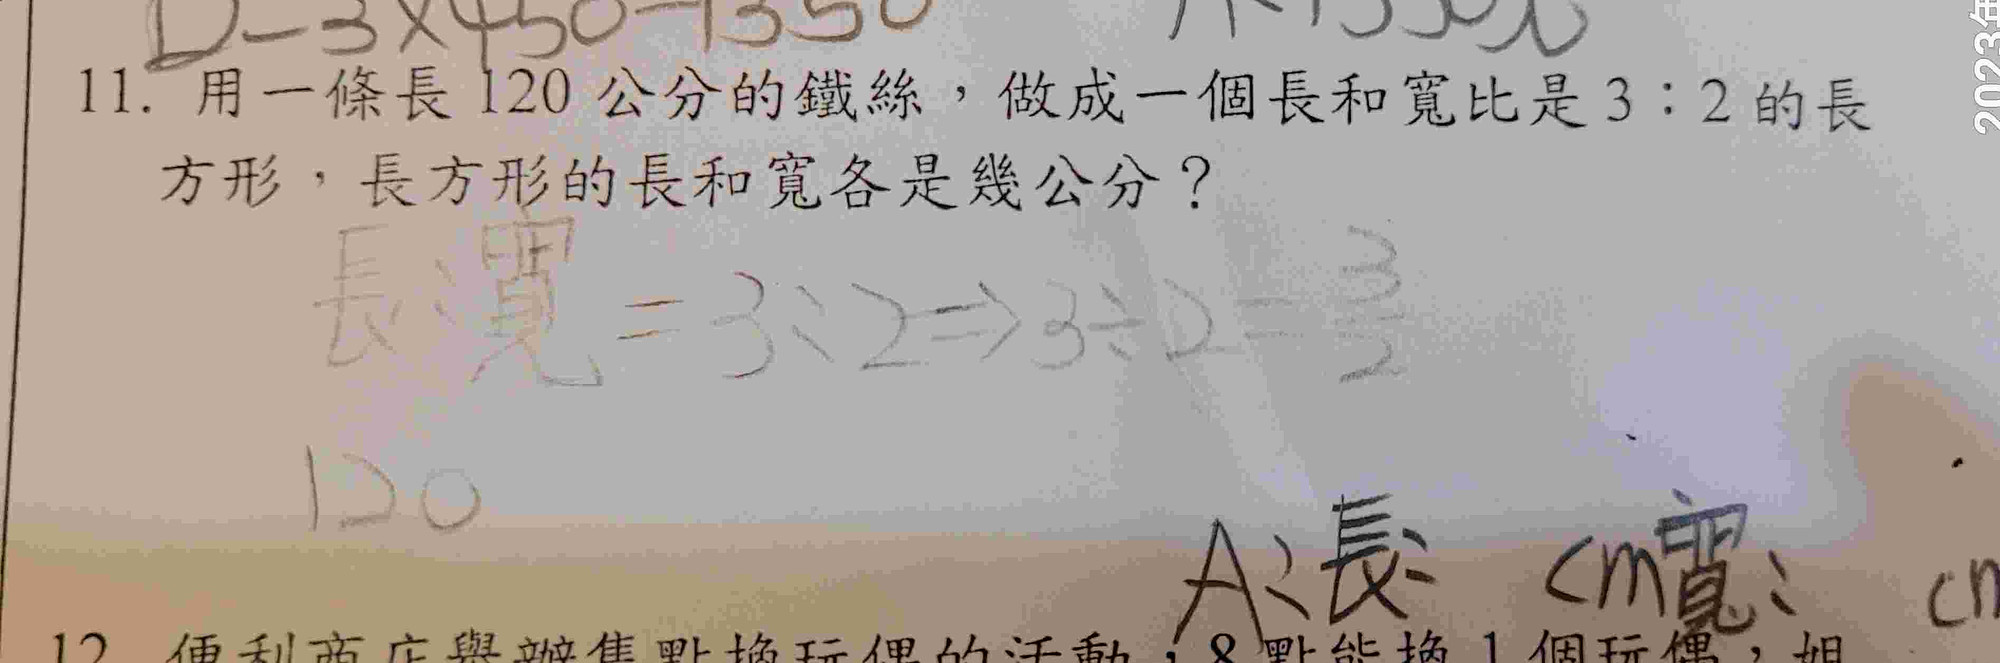 D=3×450=1350
11. 用一條長 120 公分的鐵絲，做成一個長和寬比是 3：2 的長
方形，長方形的長和寬各是幾公分？
長:寬=3:2⇒3÷2=3/2
120
A:長: cm寬:
12. 便利商店舉辦集點換玩偶的活動，8 點能換 1 個玩偶，姐
2023年